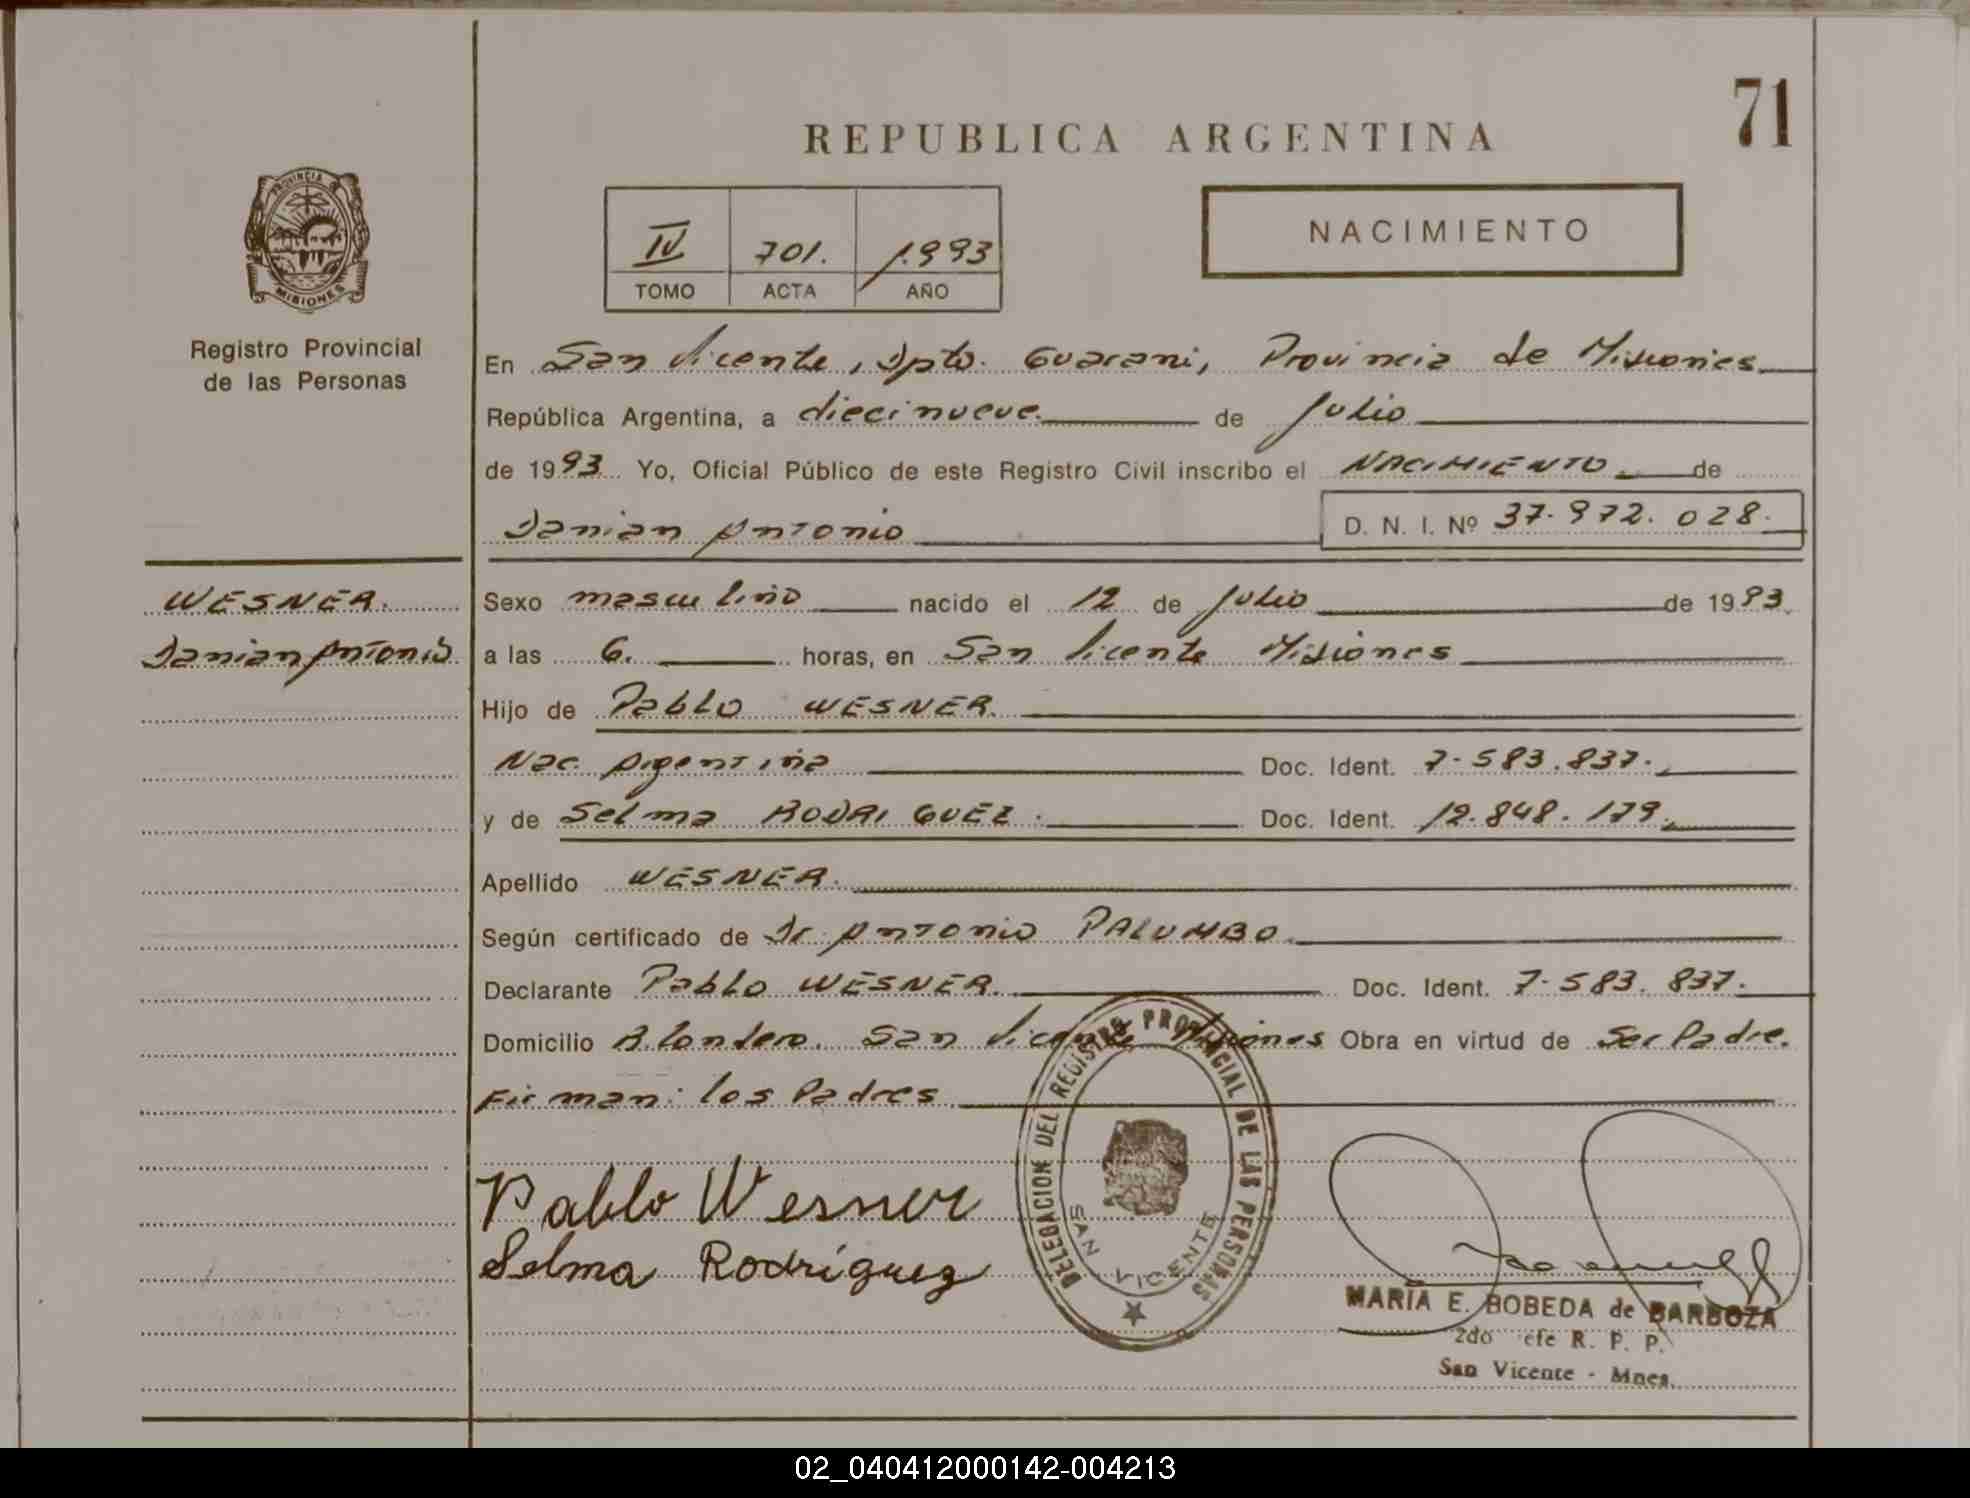 71
REPUBLICA ARGENTINA
PROVINCIA D
MISIONES
Registro Provincial
de las Personas
IV 701. 1.993
TOMO ACTA AÑO
NACIMIENTO
En San Vicente, Dpto. Guarani, Provincia de Misiones
República Argentina, a diecinueve de Julio
de 1993 Yo, Oficial Público de este Registro Civil inscribo el NACIMIENTO de
Damian Antonio D. N. I. Nº 37.972.028.
WESNER.
Damian Antonio
Sexo masculino nacido el 12 de Julio de 1993.
a las 6. horas, en San Vicente Misiones
Hijo de Pablo WESNER.
Nac. Argentina Doc. Ident. 7.583.837.
y de Selma RODRIGUEZ. Doc. Ident. 12.848.179.
Apellido WESNER.
Según certificado de Dr. Antonio PALUMBO.
Declarante Pablo WESNER. Doc. Ident. 7.583.837.
Domicilio San Vicente Misiones Obra en virtud de Ser Padre.
Firman: los Padres
Pablo Wesner
Selma Rodríguez
DELEGACION DEL REGISTRO PROVINCIAL DE LAS PERSONAS
SAN VICENTE
MARIA E. BOBEDA de BARBOZA
2do efe R. P. P.
San Vicente - Mnes.
02_040412000142-004213